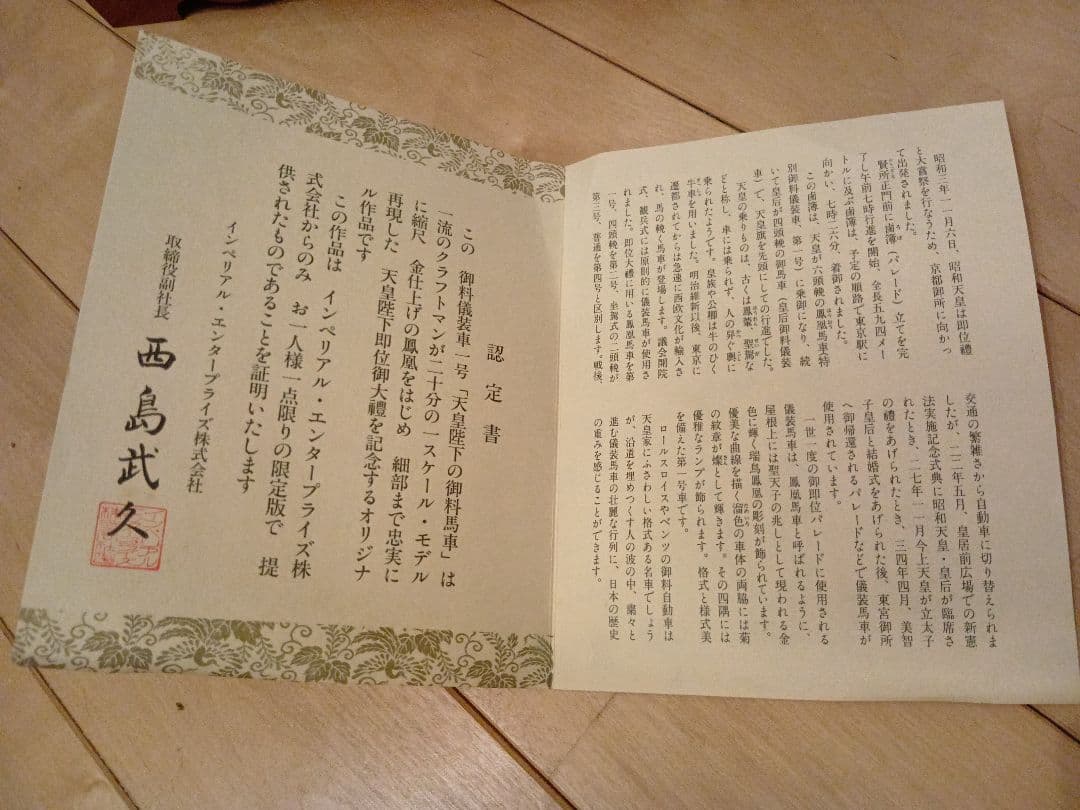 昭和三年一一月六日、昭和天皇は即位禮
と大嘗祭を行なうため、京都御所に向かっ
て出発されました。
賢所正門前に鹵簿(パレード)立てを完
了し午前七時行進を開始、全長五九四メー
トルに及ぶ鹵簿は、予定の順路で東京駅に
向かい、七時二六分、着御されました。
この鹵簿は、天皇が六頭輓の鳳凰馬車(特
別御料儀装車、第一号)に乗御になり、続
いて皇后が四頭輓の御馬車(皇后御料儀装
車)で、天皇旗を先頭にしての行進でした。
天皇の乗りものは、古くは鳳輦、聖駕な
どと称し、車には乗られず、人の舁ぐ輿に
乗られたようです。皇族や公卿は牛のひく
牛車を用いました。明治維新以後、東京に
遷都されてからは急速に西欧文化が輸入さ
れ、馬の輓く馬車が登場します。議会開院
式、観兵式には原則的に儀装馬車が使用さ
れました。即位大禮に用いる鳳凰馬車を第
一号、四頭輓を第二号、坐馭式の二頭輓が
第三号、普通を第四号と区別します。戦後、
交通の繁雑さから自動車に切り替えられま
したが、二二年五月、皇居前広場での新憲
法実施記念式典に昭和天皇・皇后が臨席さ
れたとき、二七年一一月今上天皇が立太子
の禮をあげられたとき、三四年四月、美智
子皇后と結婚式をあげられた後、東宮御所
へ御帰還されるパレードなどで儀装馬車が
使用されています。
一世一度の御即位パレードに使用される
儀装馬車は、鳳凰馬車と呼ばれるように、
屋根上には聖天子の兆しとして現われる金
色に輝く瑞鳥鳳凰の彫刻が飾られています。
優美な曲線を描く溜色の車体の両脇には菊
の紋章が燦として輝きます。その四隅には
優雅なランプが飾られます。格式と様式美
を備えた第一号車です。
ロールスロイスやベンツの御料自動車は
天皇家にふさわしい格式ある名車でしょう
が、沿道を埋めつくす人の波の中、粛々と
進む儀装馬車の壮麗な行列に、日本の歴史
の重みを感じることができます。
認定書
この 御料儀装車一号「天皇陛下の御料馬車」は
一流のクラフトマンが二十分の一スケール・モデル
に縮尺 金仕上げの鳳凰をはじめ 細部まで忠実に
再現した 天皇陛下即位御大禮を記念するオリジナ
ル作品です
この作品は インペリアル・エンタープライズ株
式会社からのみ お一人様一点限りの限定版で 提
供されたものであることを証明いたします
インペリアル・エンタープライズ株式会社
取締役副社長 西島武久